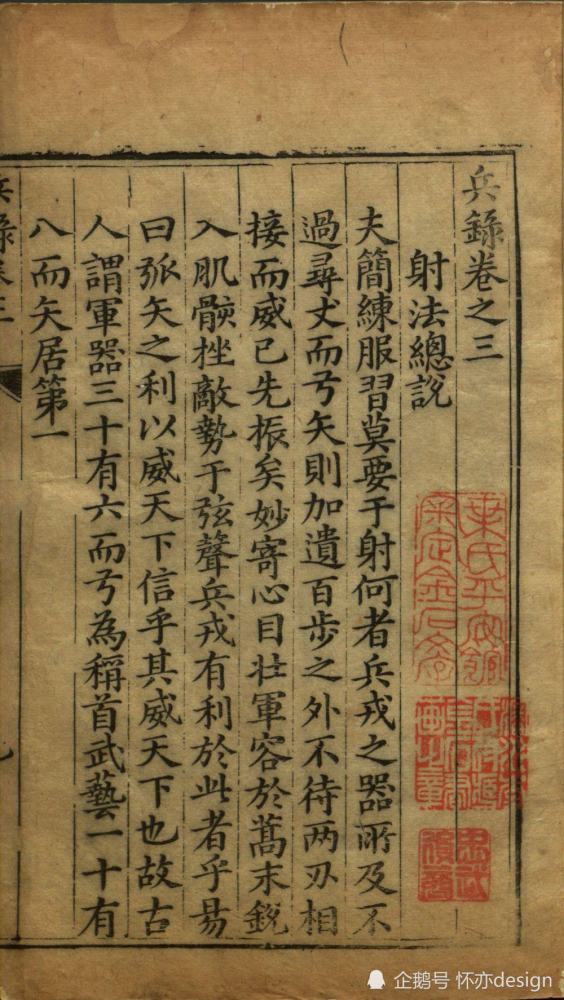 兵錄卷之三
射法總說
夫簡練服習莫要于射何者兵戎之器所及不
過尋丈而弓矢則加遺百步之外不待两刃相
接而威已先振矣妙寄心目壯軍容於蒿末銳
入肌骸挫敵勢于弦聲兵戎有利於此者乎易
曰弧矢之利以威天下信乎其威天下也故古
人謂軍器三十有六而弓為稱首武藝一十有
八而矢居第一
兵錄卷三
企鹅号 怀亦design